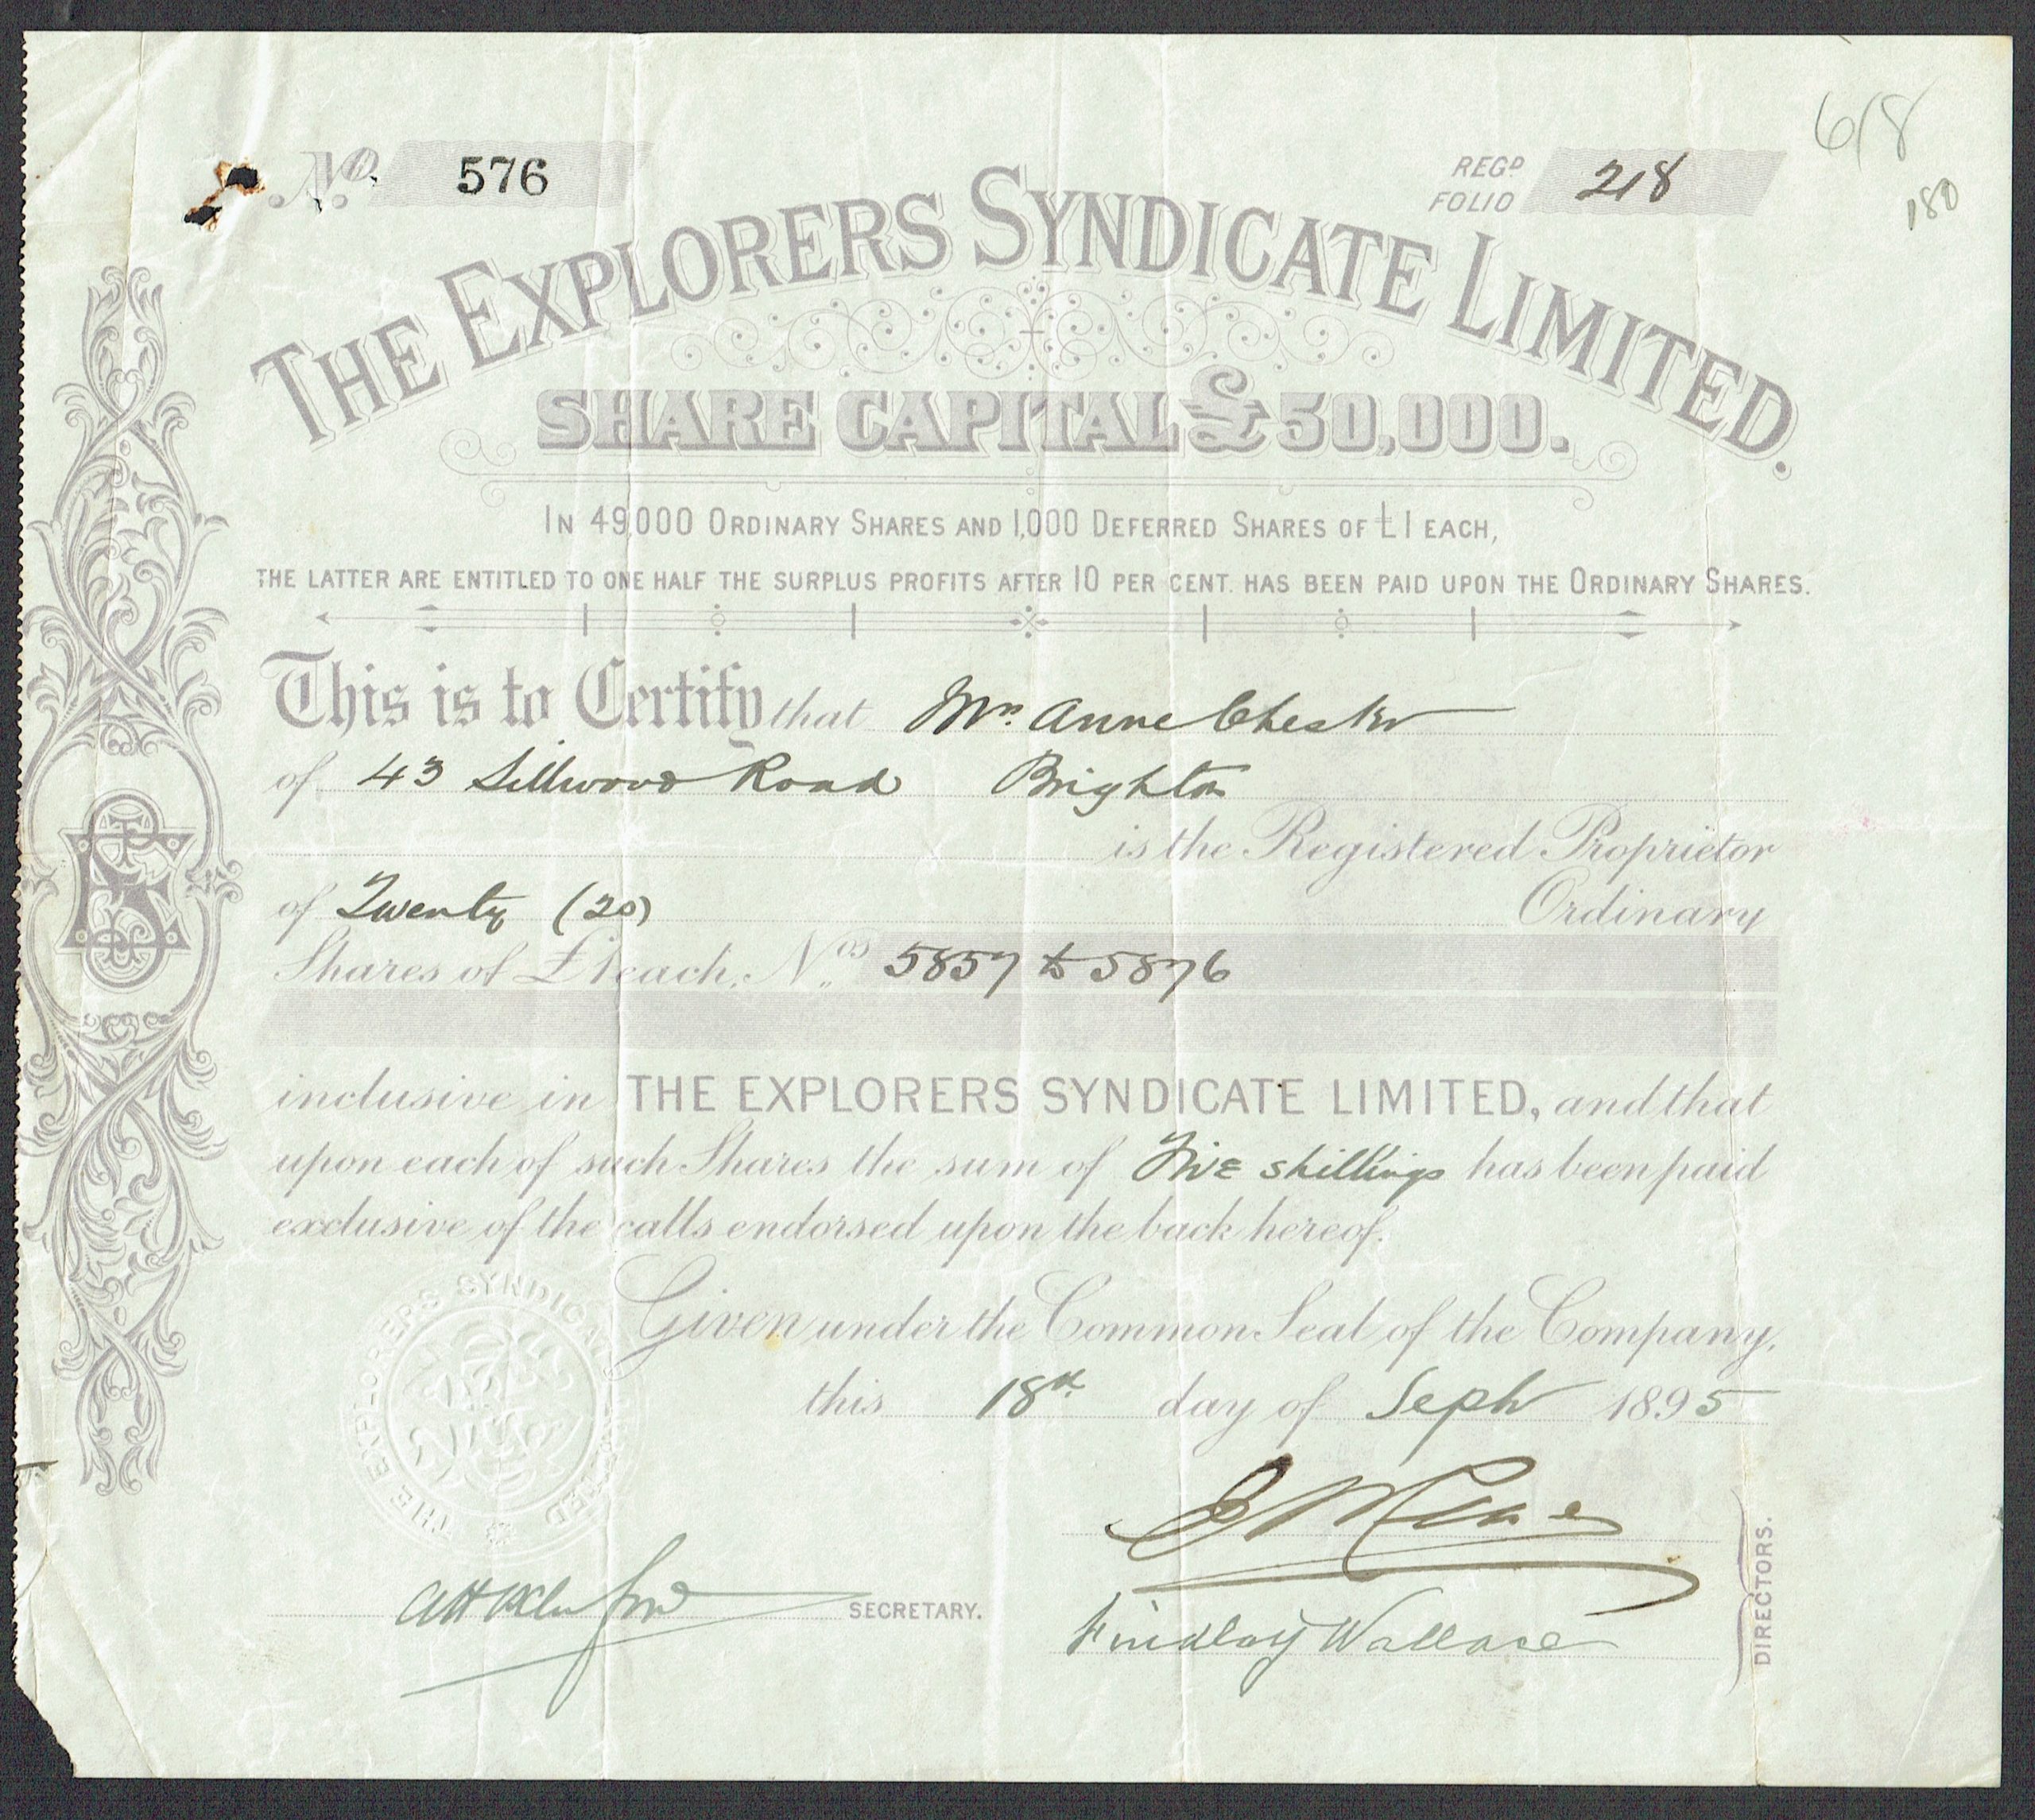 No. 576
REGD FOLIO 218
618
180
THE EXPLORERS SYNDICATE LIMITED.
SHARE CAPITAL £50,000.
IN 49,000 ORDINARY SHARES AND 1,000 DEFERRED SHARES OF £1 EACH,
THE LATTER ARE ENTITLED TO ONE HALF THE SURPLUS PROFITS AFTER 10 PER CENT. HAS BEEN PAID UPON THE ORDINARY SHARES.
This is to Certify that Mrs. Anne Chester
of 43 Sillwood Road Brighton
is the Registered Proprietor
of Twenty (20) Ordinary
Shares of £1 each, Nos. 5857 to 5876
inclusive in THE EXPLORERS SYNDICATE LIMITED, and that
upon each of such Shares the sum of Five shillings has been paid
exclusive of the calls endorsed upon the back hereof.
Given under the Common Seal of the Company,
this 18th day of Sept 1895
THE EXPLORERS SYNDICATE LIMITED
SECRETARY.
Findlay Wallace
DIRECTORS.